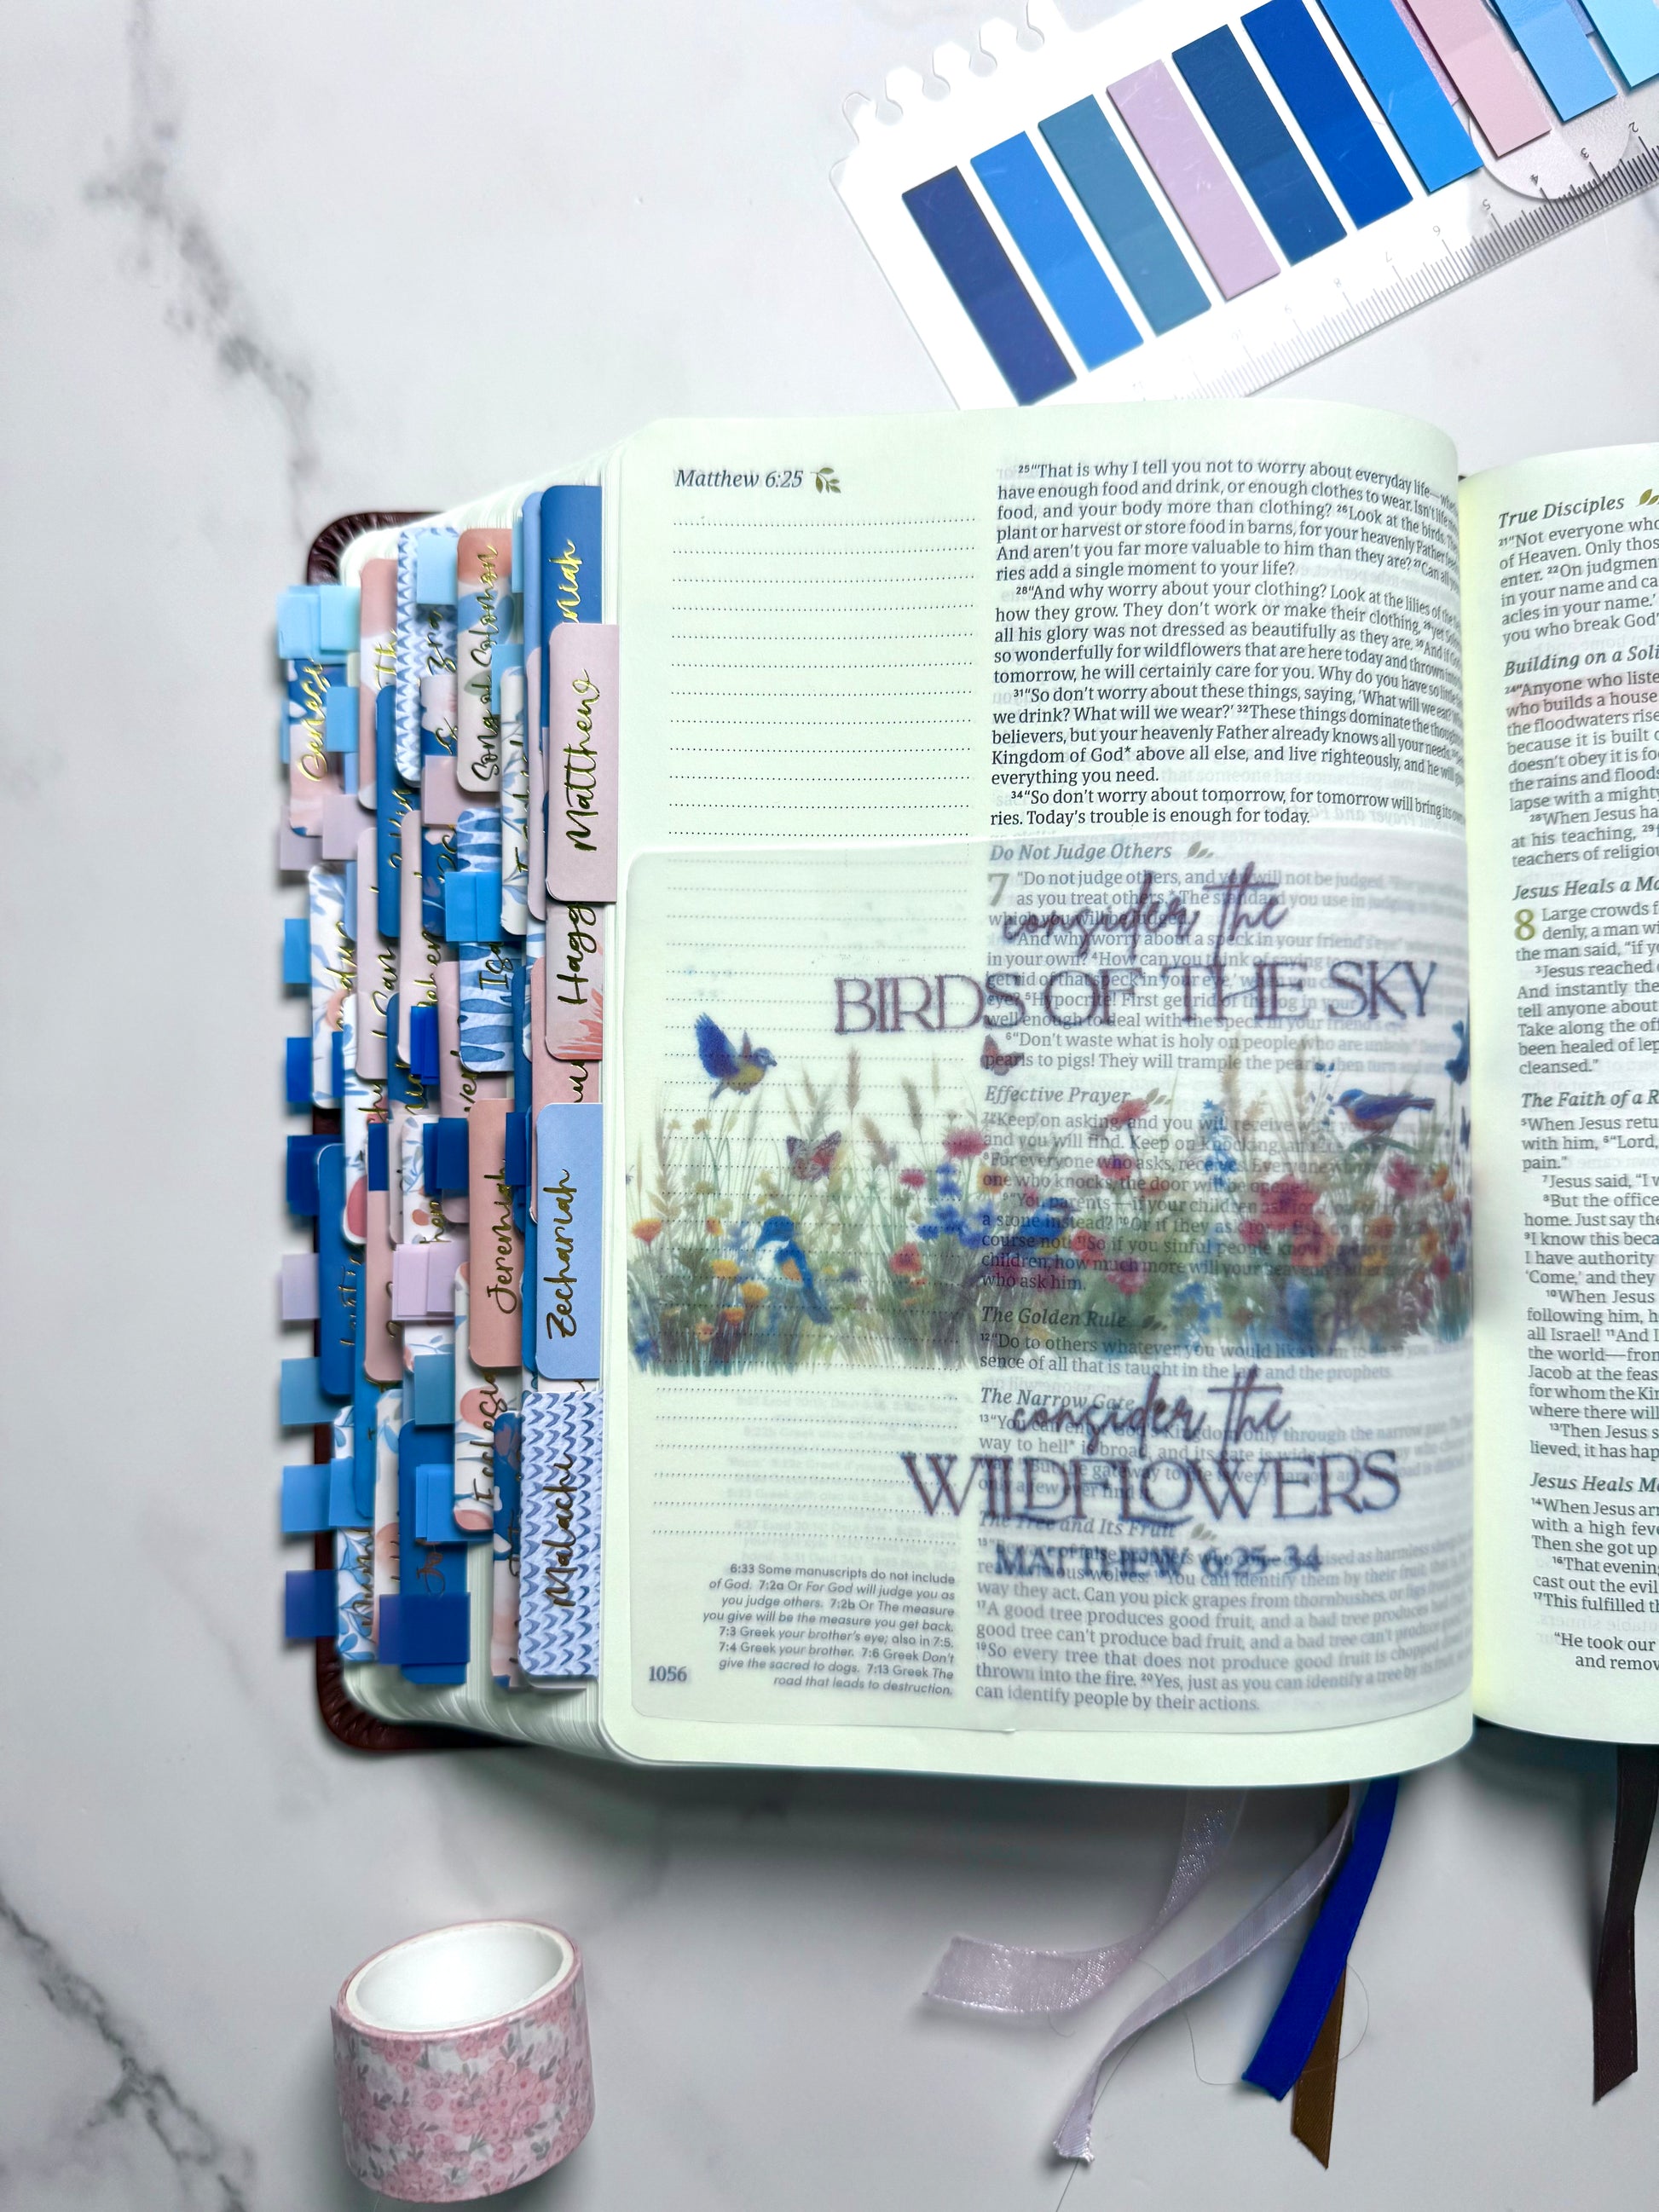 Genesis
Song of Solomon
Matthew
Hagg
Jeremiah
Zechariah
Malachi
Matthew 6:25
²⁵“That is why I tell you not to worry about everyday life—
have enough food and drink, or enough clothes to wear. Isn’t life
food, and your body more than clothing? ²⁶Look at the birds.
plant or harvest or store food in barns, for your heavenly Father
And aren’t you far more valuable to him than they are? ²⁷Can all
ries add a single moment to your life?
²⁸“And why worry about your clothing? Look at the lilies of the
how they grow. They don’t work or make their clothing, ²⁹yet
all his glory was not dressed as beautifully as they are. ³⁰And if
so wonderfully for wildflowers that are here today and thrown
tomorrow, he will certainly care for you. Why do you have so little
³¹“So don’t worry about these things, saying, ‘What will we eat?
we drink? What will we wear?’ ³²These things dominate the
believers, but your heavenly Father already knows all your needs.
Kingdom of God* above all else, and live righteously, and he will
everything you need.
³⁴“So don’t worry about tomorrow, for tomorrow will bring its
ries. Today’s trouble is enough for today.
Do Not Judge Others
7 “Do not judge others, and you will not be judged.
as you treat others.* The standard you use in judging
which you will be judged.
³“And why worry about a speck in your friend’s eye*
in your own? ⁴How can you think of saying
get rid of that speck in your eye,’ when you
eye? ⁵Hypocrite! First get rid of the log in your
well enough to deal with the speck in your friend’s eye.
⁶“Don’t waste what is holy on people who are unholy.*
pearls to pigs! They will trample the pearls, then turn and
Effective Prayer
⁷“Keep on asking, and you will receive
and you will find. Keep on knocking, and
⁸For everyone who asks, receives. Everyone
one who knocks, the door will be opened.
⁹“You parents—if your children ask for
a stone instead? ¹⁰Or if they ask for a fish,
course not! ¹¹So if you sinful people know
children, how much more will your heavenly Father
who ask him.
The Golden Rule
¹²“Do to others whatever you would like them to do to you.
sence of all that is taught in the law and the prophets.
The Narrow Gate
¹³“You can enter God’s Kingdom only through the narrow
way to hell* is broad, and its gate is wide
way. ¹⁴But the gateway to life is very narrow
only a few ever find it.
The Tree and Its Fruit
¹⁵“Beware of false prophets who come disguised as harmless
really vicious wolves. ¹⁶You can identify them by their fruit,
way they act. Can you pick grapes from thornbushes, or figs
¹⁷A good tree produces good fruit, and a bad tree produces
good tree can’t produce bad fruit, and a bad tree can’t produce
¹⁹So every tree that does not produce good fruit is chopped
thrown into the fire. ²⁰Yes, just as you can identify a tree by its
can identify people by their actions.
consider the
BIRDS OF THE SKY
consider the
WILDFLOWERS
MATTHEW 6:25-34
6:33 Some manuscripts do not include
of God. 7:2a Or For God will judge you as
you judge others. 7:2b Or The measure
you give will be the measure you get back.
7:3 Greek your brother’s eye; also in 7:5.
7:4 Greek your brother. 7:6 Greek Don’t
give the sacred to dogs. 7:13 Greek The
road that leads to destruction.
1056
True Disciples
²¹“Not everyone who
of Heaven. Only those
enter. ²²On judgment
in your name and ca
acles in your name.’
you who break God’
Building on a Soli
²⁴“Anyone who liste
who builds a house
the floodwaters rise
because it is built o
doesn’t obey it is foo
the rains and floods
lapse with a mighty
²⁸When Jesus ha
at his teaching, ²⁹
teachers of religiou
Jesus Heals a Ma
8 Large crowds f
denly, a man wi
the man said, “if yo
³Jesus reached
And instantly the
tell anyone about
Take along the off
been healed of lep
cleansed.”
The Faith of a R
⁵When Jesus retu
with him, ⁶“Lord,
pain.”
⁷Jesus said, “I w
⁸But the office
home. Just say the
⁹I know this beca
I have authority
‘Come,’ and they
¹⁰When Jesus
following him, h
all Israel! ¹¹And I
the world—from
Jacob at the feas
for whom the Kin
where there will
¹³Then Jesus s
lieved, it has hap
Jesus Heals Ma
¹⁴When Jesus arr
with a high feve
Then she got up
¹⁶That evening
cast out the evil
¹⁷This fulfilled th
“He took our
and remov
2
3
4
5
6
7
8
9
10
11